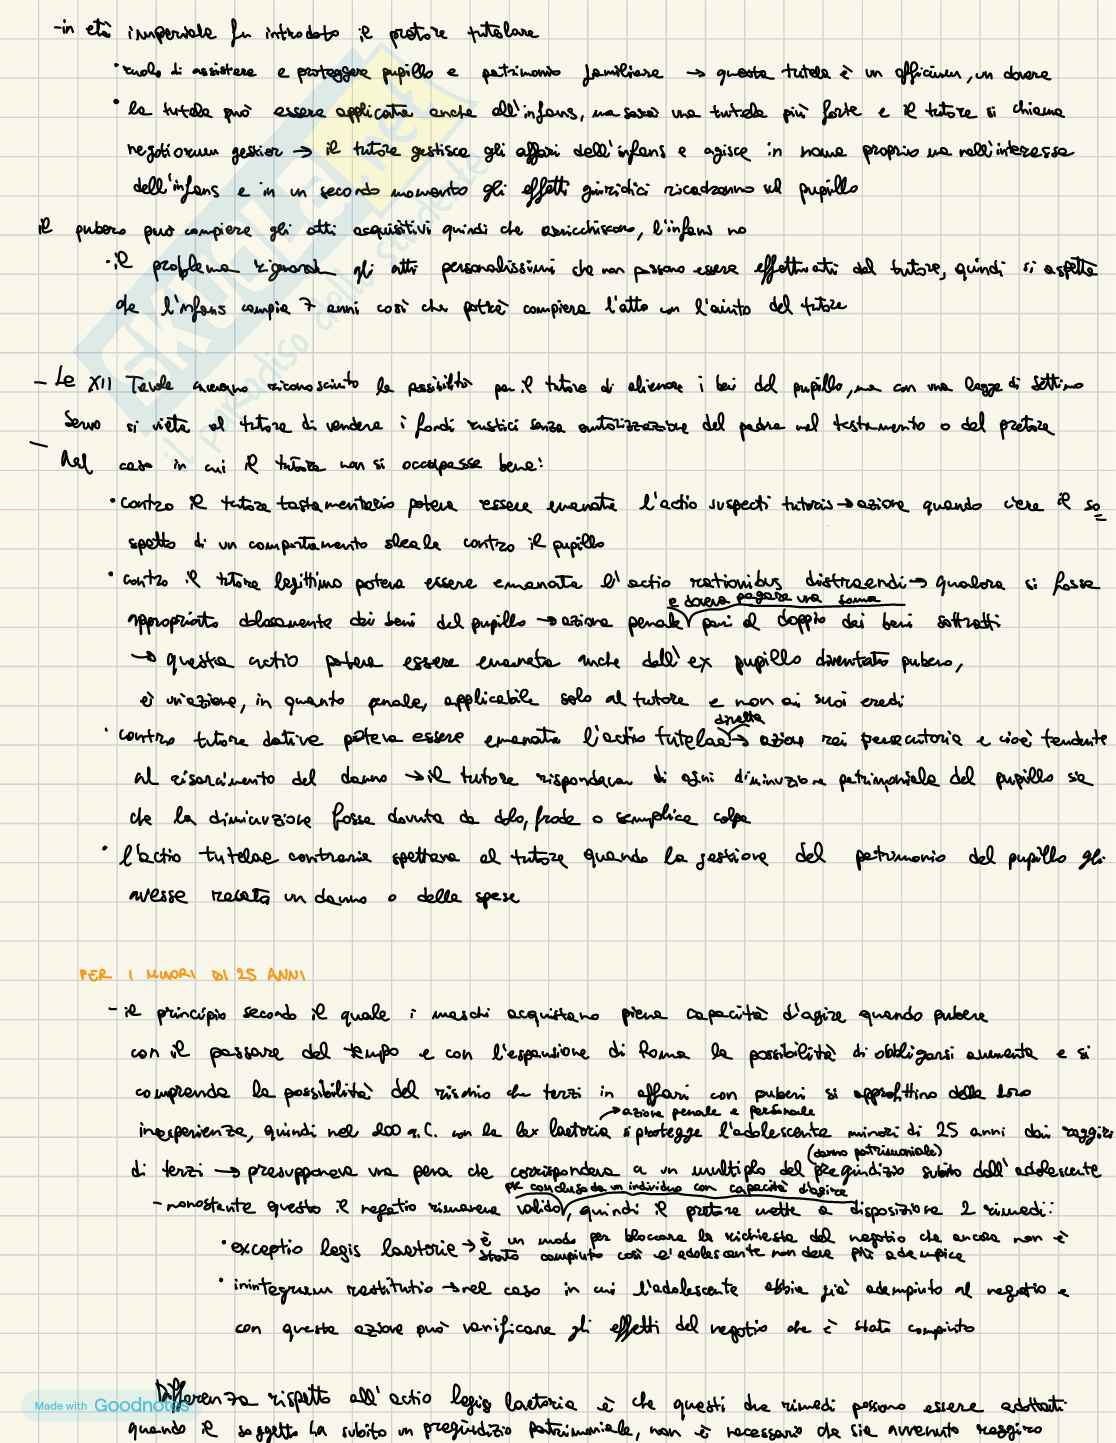 -in età imperiale fu introdotto il pretore tutelare
• ruolo di assistere e proteggere pupillo e patrimonio familiare → questa tutela è un officium, un dovere
• la tutela può essere applicata anche all'infans, ma sarà una tutela più forte e il tutore si chiama
negotiorum gestior → il tutore gestisce gli affari dell'infans e agisce in nome proprio ma nell'interesse
dell'infans e in un secondo momento gli effetti giuridici ricadranno sul pupillo
il pubero può compiere gli atti acquisitivi quindi che arricchiscono, l'infans no
• il problema riguarda gli atti personalissimi che non possono essere effettuati dal tutore, quindi si aspetta
che l'infans compia 7 anni così che potrà compiere l'atto con l'aiuto del tutore
- Le XII Tavole avevano riconosciuto la possibilità per il tutore di alienare i beni del pupillo, ma con una legge di Settimo
Severo si vieta al tutore di vendere i fondi rustici senza autorizzazione del padre nel testamento o del pretore
- Nel caso in cui il tutore non si occupasse bene:
• contro il tutore testamentario poteva essere emanata l'actio suspecti tutoris → azione quando c'era il so
spetto di un comportamento sleale contro il pupillo
• contro il tutore legittimo poteva essere emanata l'actio rationibus distraendi → qualora si fosse
e doveva pagare una somma
appropriato dolosamente dei beni del pupillo → azione penale pari al doppio dei beni sottratti
→ questa actio poteva essere emanata anche dall'ex pupillo diventato pubero,
è un'azione, in quanto penale, applicabile solo al tutore e non ai suoi eredi
diretta
• contro tutore dativo poteva essere emanata l'actio tutelae → azione rei persecutoria e cioè tendente
al risarcimento del danno → il tutore rispondeva di ogni diminuzione patrimoniale del pupillo sia
che la diminuzione fosse dovuta da dolo, frode o semplice colpa
• l'actio tutelae contraria spettava al tutore quando la gestione del patrimonio del pupillo gli
avesse recato un danno o delle spese
PER I MINORI DI 25 ANNI
- il principio secondo il quale i maschi acquistano piena capacità d'agire quando pubere
con il passare del tempo e con l'espansione di Roma la possibilità di obbligarsi aumenta e si
comprende la possibilità del rischio che terzi in affari con puberi si approfittino della loro
→ azione penale e personale
inesperienza, quindi nel 200 a.C. con la lex laetoria si protegge l'adolescente minori di 25 anni dai raggiri
(danno patrimoniale)
di terzi → presupponeva una pena che corrispondeva a un multiplo del pregiudizio subito dall'adolescente
pk concluso da un individuo con capacità d'agire
- nonostante questo il negotio rimaneva valido, quindi il pretore mette a disposizione 2 rimedi:
• exceptio legis laetorie → è un modo per bloccare la richiesta del negotio che ancora non è
stato compiuto così l'adolescente non deve più adempiere
• inintegrum restitutio → nel caso in cui l'adolescente abbia già adempiuto al negotio e
con questa azione può vanificare gli effetti del negotio che è stato compiuto
Differenza rispetto all'actio legis laetoria è che questi due rimedi possono essere adottati
quando il soggetto ha subito un pregiudizio patrimoniale, non è necessario che sia avvenuto raggiro
Made with Goodnotes